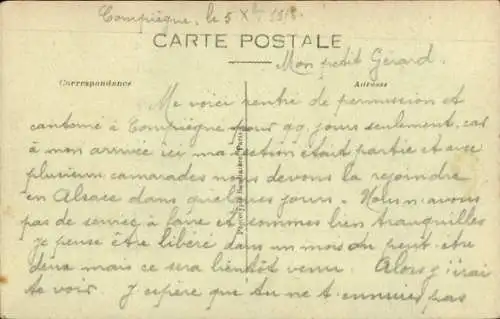 Compiègne, le 5 Xbre 1918.
CARTE POSTALE
Mon petit Gérard.
Correspondance
Adresse
Me voici rentré de permission et
cantonné à Compiègne pour qq. jours seulement, car
à mon arrivée ici ma section était partie et avec
plusieurs camarades nous devons la rejoindre
en Alsace dans quelques jours. Nous n'avons
pas de service à faire et sommes bien tranquilles
je pense être libéré dans un mois ou peut-être
deux mais ce sera bientôt venu. Alors j'irai
te voir. J'espère que tu ne t'ennuies pas